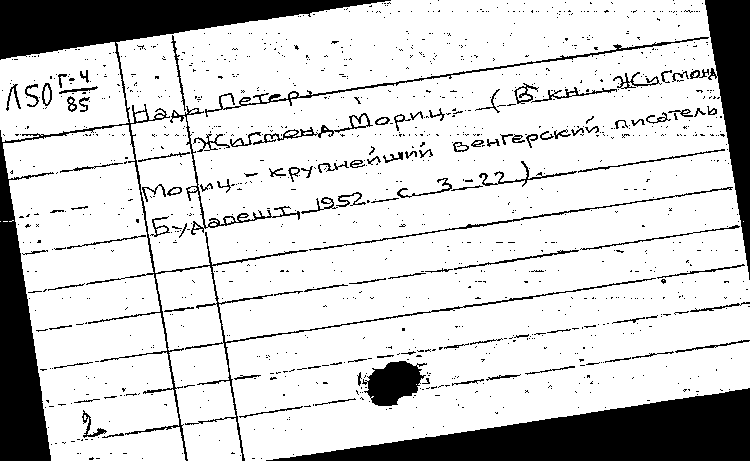 150 Г-4/85
Надь, Петер.
Жигмонд Мориц. - ( В кн.: Жигмонд
Мориц - крупнейший венгерский писатель
Будапешт, 1952. с. 3-22 ).
2